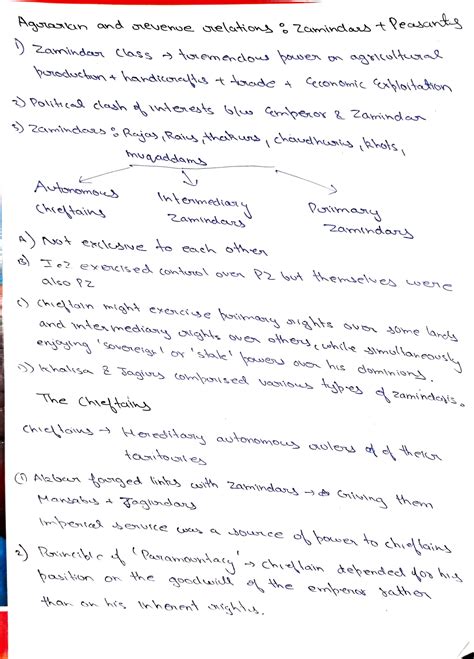 Agrarian and revenue relations : Zamindars + Peasants
1) Zamindar class → tremendous power on agricultural
production + handicrafts + trade + Economic Exploitation
2) Political clash of interests b/w Emperor & Zamindar
3) Zamindars : Rajas, Rais, thakurs, chaudhuris, khots,
muqaddams
Autonomous Chieftains
Intermediary Zamindars
Primary Zamindars
A) Not exclusive to each other
B) IoZ exercised control over PZ but themselves were
also PZ
c) Chieftain might exercise primary rights over some lands
and intermediary rights over others, while simultaneously
enjoying 'sovereign' or 'state' powers over his dominions.
D) Khalisa & Jagirs comprised various types of zamindaris.
The Chieftains
Chieftains → Hereditary autonomous rulers of of their
taritouries
(1) Akbar forged links with Zamindars → Giving them
Mansabs + Jagirdars
Imperical service was a source of power to chieftains
2) Princible of 'Paramountacy' → chieftain depended for his
position on the goodwill of the emperor rather
than on his inherent rights.